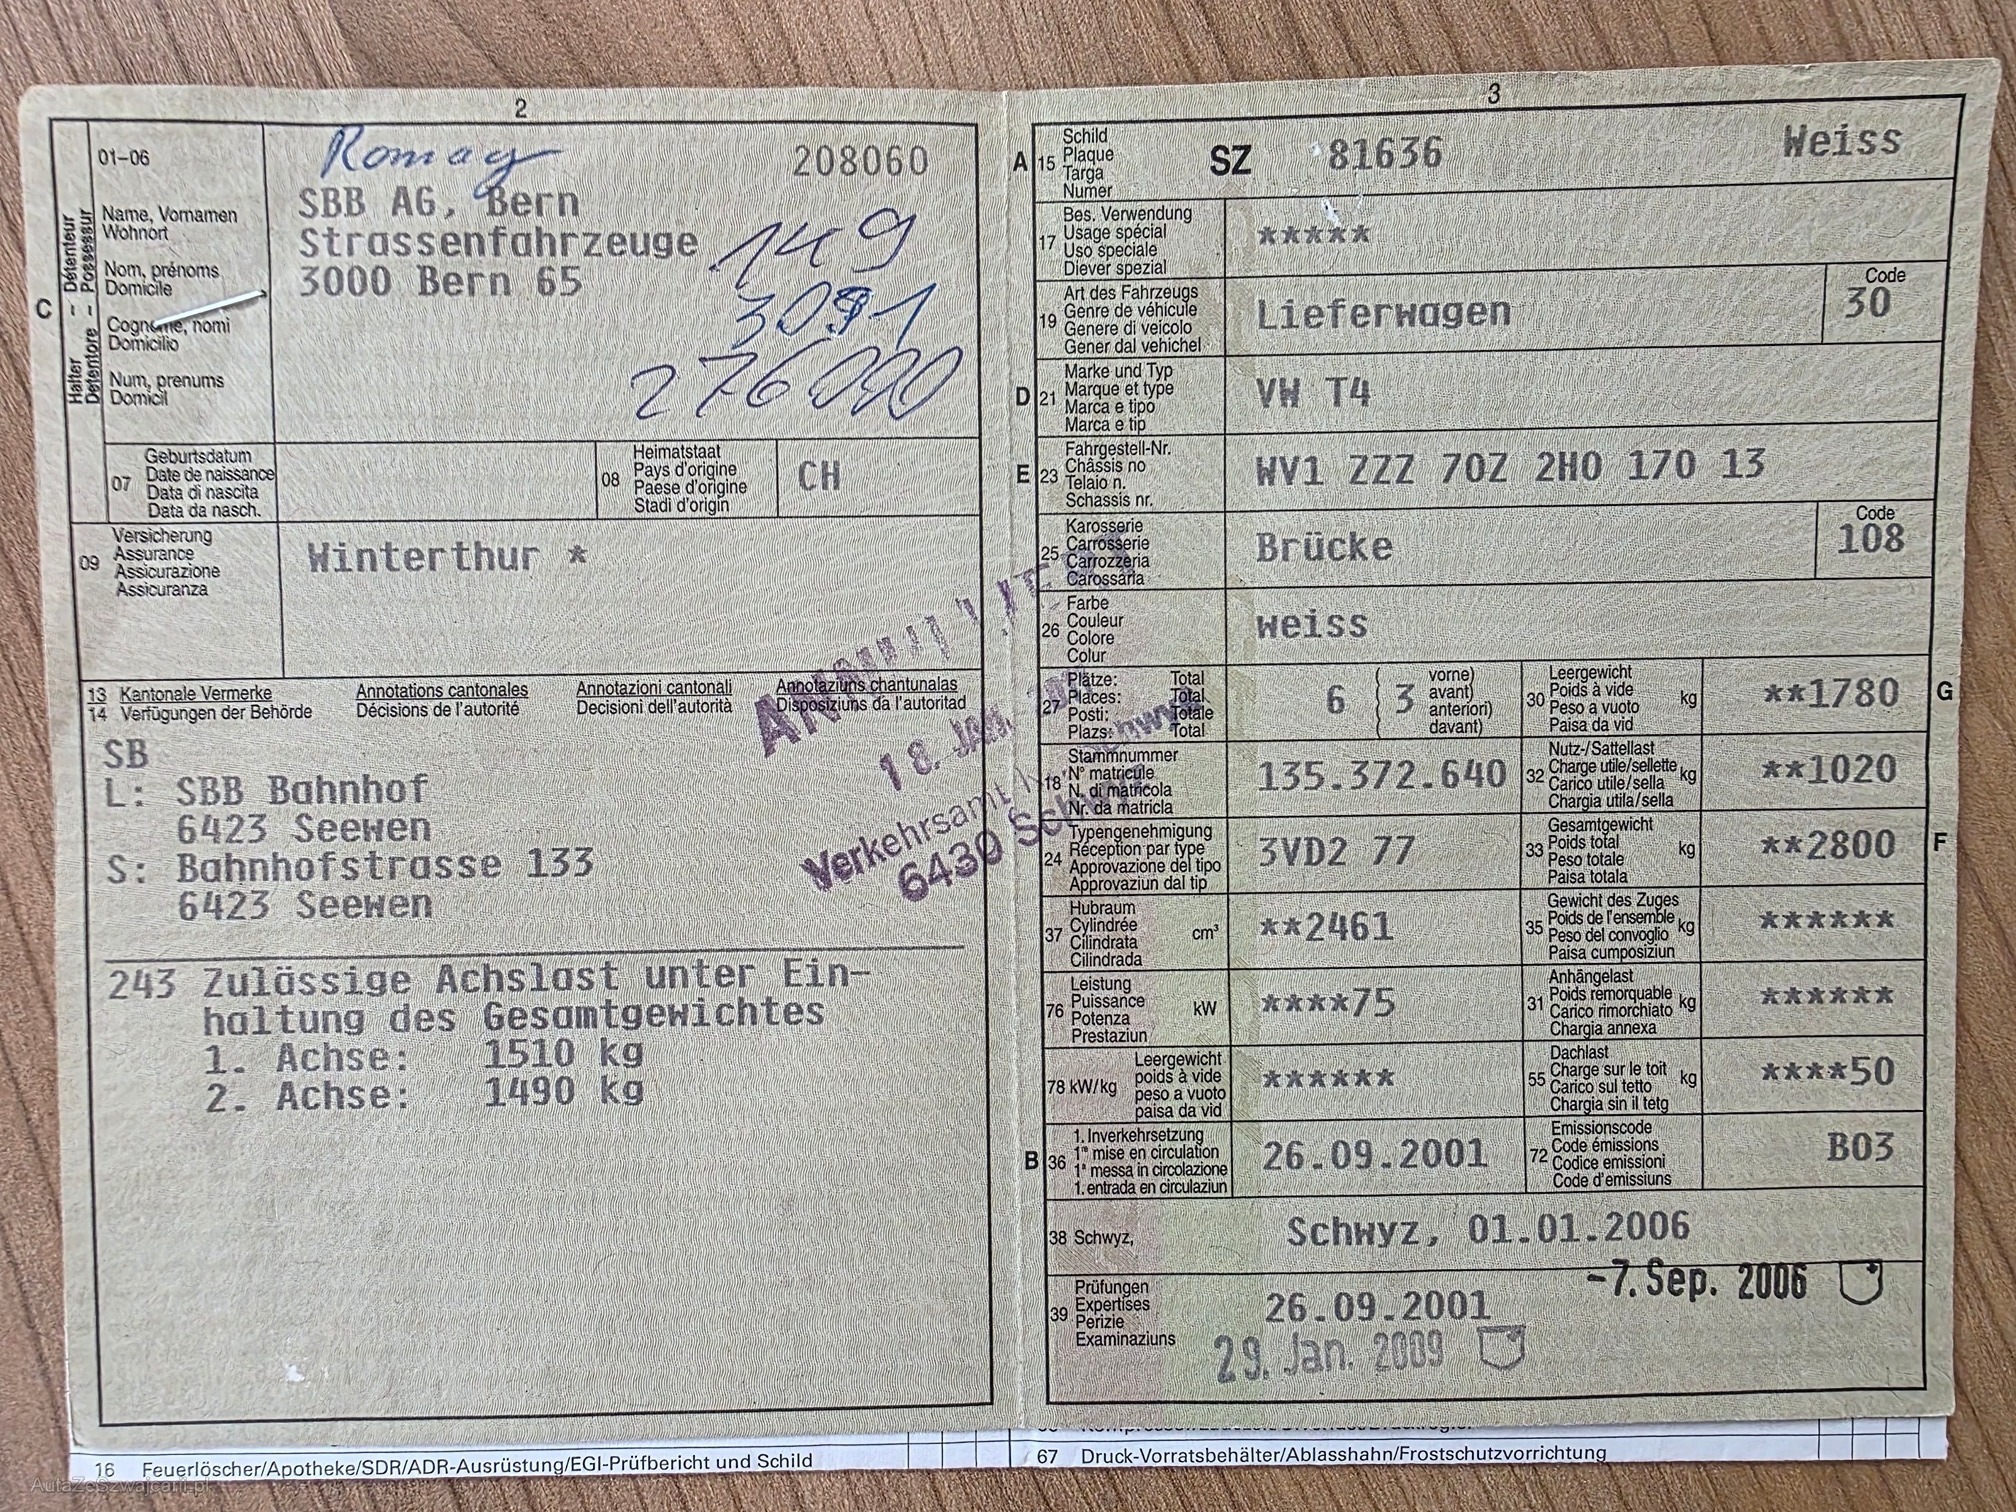 2
01-06
Romag
208060
Halter - Détenteur
Detentore - Possessur
C
Name, Vornamen
Wohnort
Nom, prénoms
Domicile
Cognome, nomi
Domicilio
Num, prenums
Domicil
SBB AG, Bern
Strassenfahrzeuge
3000 Bern 65
149
3091
276000
07 Geburtsdatum
Date de naissance
Data di nascita
Data da nasch.
08 Heimatstaat
Pays d'origine
Paese d'origine
Stadi d'origin
CH
09 Versicherung
Assurance
Assicurazione
Assicuranza
Winterthur *
13 Kantonale Vermerke Annotations cantonales Annotazioni cantonali Annotaziuns chantunalas
14 Verfügungen der Behörde Décisions de l'autorité Decisioni dell'autorità Disposiziuns da l'autoritad
SB
L: SBB Bahnhof
6423 Seewen
S: Bahnhofstrasse 133
6423 Seewen
243 Zulässige Achslast unter Ein-
haltung des Gesamtgewichtes
1. Achse: 1510 kg
2. Achse: 1490 kg
18. JAN.
Verkehrsamt
6430 Schwyz
3
A 15 Schild
Plaque
Targa
Numer
SZ 81636 Weiss
17 Bes. Verwendung
Usage spécial
Uso speciale
Diever spezial
*****
19 Art des Fahrzeugs
Genre de véhicule
Genere di veicolo
Gener dal vehichel
Lieferwagen
Code
30
D 21 Marke und Typ
Marque et type
Marca e tipo
Marca e tip
VW T4
E 23 Fahrgestell-Nr.
Châssis no
Telaio n.
Schassis nr.
WV1 ZZZ 70Z 2H0 170 13
25 Karosserie
Carrosserie
Carrozzeria
Carossaria
Brücke
Code
108
26 Farbe
Couleur
Colore
Colur
weiss
27 Plätze: Total
Places: Total
Posti: Totale
Plazs: Total
6 ( 3 vorne)
avant)
anteriori)
davant)
30 Leergewicht
Poids à vide
Peso a vuoto
Paisa da vid
kg
**1780
G
18 Stammnummer
N° matricule
N. di matricola
Nr. da matricla
135.372.640
32 Nutz-/Sattellast
Charge utile/sellette
Carico utile/sella
Chargia utila/sella
kg
**1020
24 Typengenehmigung
Réception par type
Approvazione del tipo
Approvaziun dal tip
3VD2 77
33 Gesamtgewicht
Poids total
Peso totale
Paisa totala
kg
**2800
F
37 Hubraum
Cylindrée
Cilindrata
Cilindrada
cm³
**2461
35 Gewicht des Zuges
Poids de l'ensemble
Peso del convoglio
Paisa cumposiziun
kg
******
76 Leistung
Puissance
Potenza
Prestaziun
kW
****75
31 Anhängelast
Poids remorquable
Carico rimorchiato
Chargia annexa
kg
******
78 kW/kg Leergewicht
poids à vide
peso a vuoto
paisa da vid
******
55 Dachlast
Charge sur le toit
Carico sul tetto
Chargia sin il tetg
kg
****50
B 36 1. Inverkehrsetzung
1re mise en circulation
1a messa in circolazione
1. entrada en circulaziun
26.09.2001
72 Emissionscode
Code émissions
Codice emissioni
Code d'emissiuns
B03
38 Schwyz,
Schwyz, 01.01.2006
39 Prüfungen
Expertises
Perizie
Examinaziuns
26.09.2001
-7. Sep. 2006
29. Jan. 2009
16 Feuerlöscher/Apotheke/SDR/ADR-Ausrüstung/EGI-Prüfbericht und Schild
67 Druck-Vorratsbehälter/Ablasshahn/Frostschutzvorrichtung
AutaZeSzwajcarii.pl